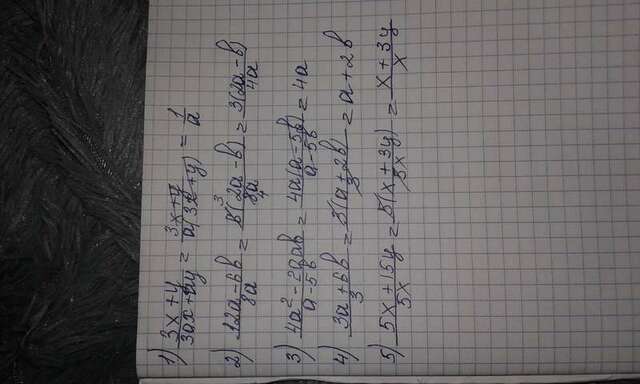 1) 3x+y / 3ax+ay = 3x+y / a(3x+y) = 1 / a
2) 12a-6b / 8a = 6(2a-b) / 8a = 3(2a-b) / 4a
3) 4a²-20ab / a-5b = 4a(a-5b) / a-5b = 4a
4) 3a+6b / 3 = 3(a+2b) / 3 = a+2b
5) 5x+15y / 5x = 5(x+3y) / 5x = x+3y / x